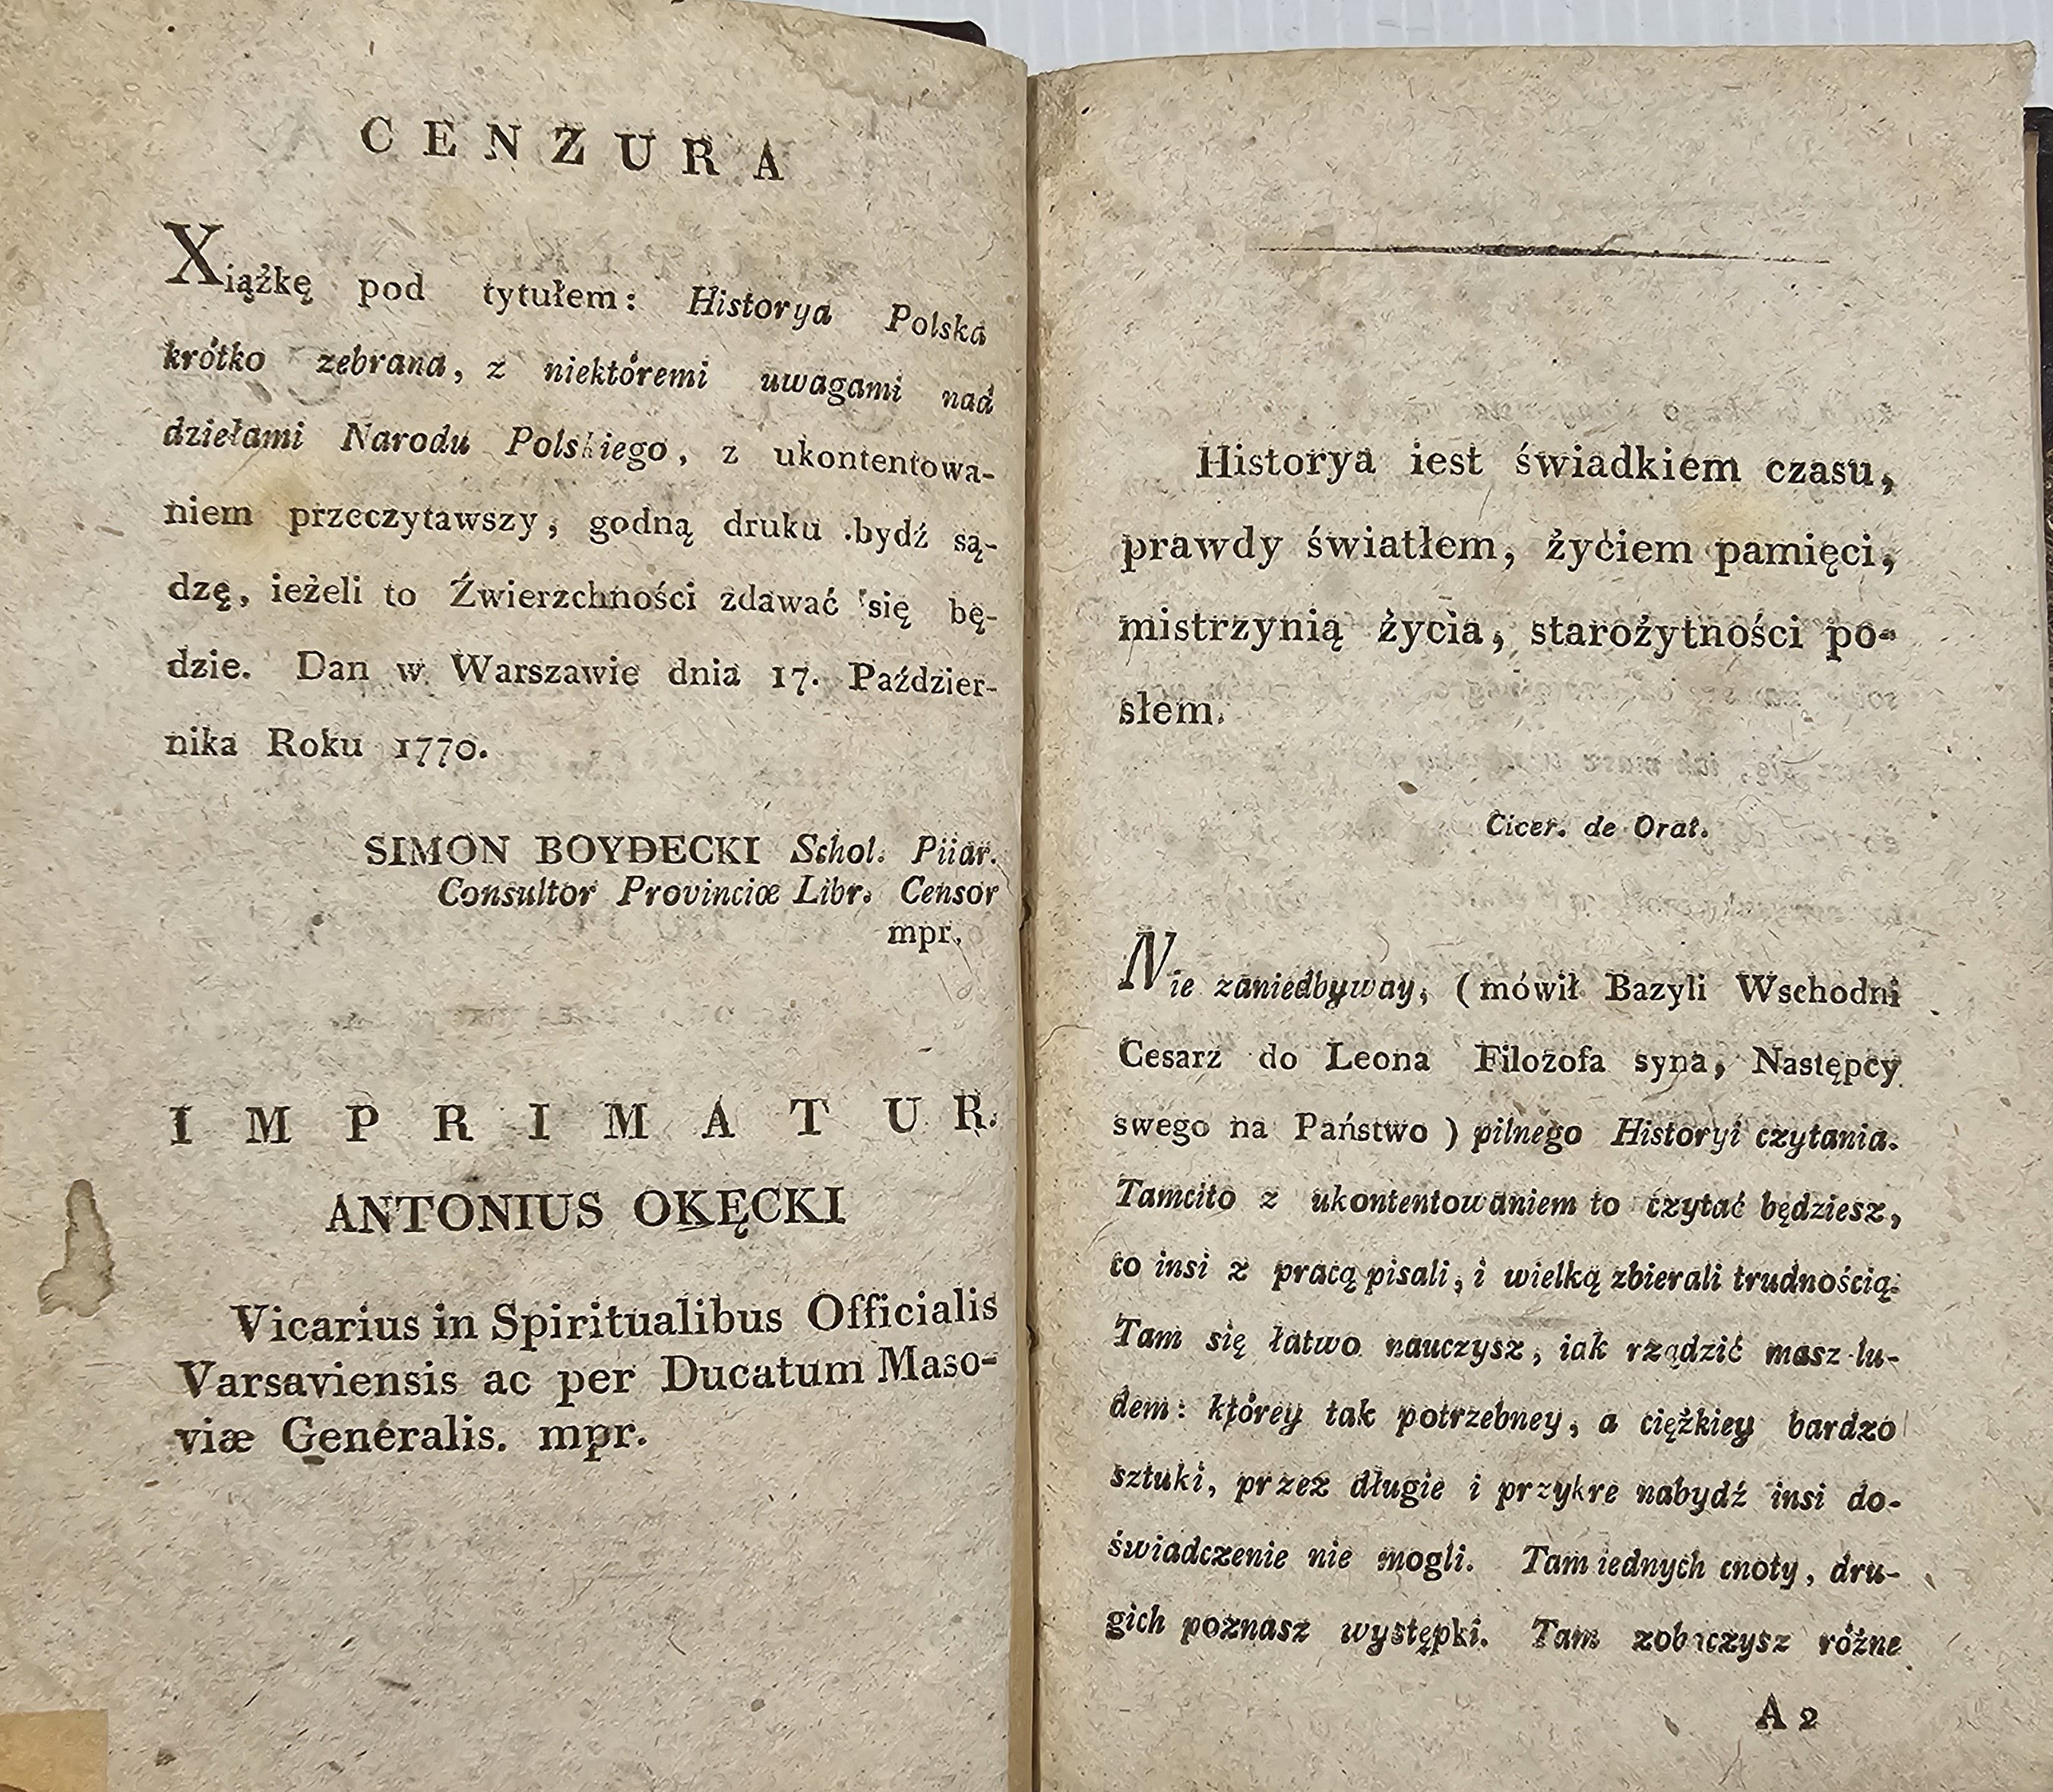 CENZURA
Xiążkę pod tytułem: Historya Polska
krótko zebrana, z niektóremi uwagami nad
dziełami Narodu Polskiego, z ukontentowa-
niem przeczytawszy, godną druku bydź są-
dzę, ieżeli to Źwierzchności zdawać się bę-
dzie. Dan w Warszawie dnia 17. Paździer-
nika Roku 1770.
SIMON BOYDECKI Schol. Piiar.
Consultor Provinciæ Libr. Censor
mpr.
IMPRIMATUR.
ANTONIUS OKĘCKI
Vicarius in Spiritualibus Officialis
Varsaviensis ac per Ducatum Maso-
viæ Generalis. mpr.
Historya iest świadkiem czasu,
prawdy światłem, życiem pamięci,
mistrzynią życia, starożytności po-
słem.
Cicer. de Orat.
Nie zaniedbyway, (mówił Bazyli Wschodni
Cesarz do Leona Filozofa syna, Następcy
swego na Państwo) pilnego Historyi czytania.
Tamcito z ukontentowaniem to czytać będziesz,
co insi z pracą pisali, i wielką zbierali trudnością.
Tam się łatwo nauczysz, iak rządzić masz lu-
dem: którey tak potrzebney, a ciężkiey bardzo
sztuki, przez długie i przykre nabydź insi do-
świadczenie nie mogli. Tam iednych cnoty, dru-
gich poznasz występki. Tam zobaczysz różne
A 2